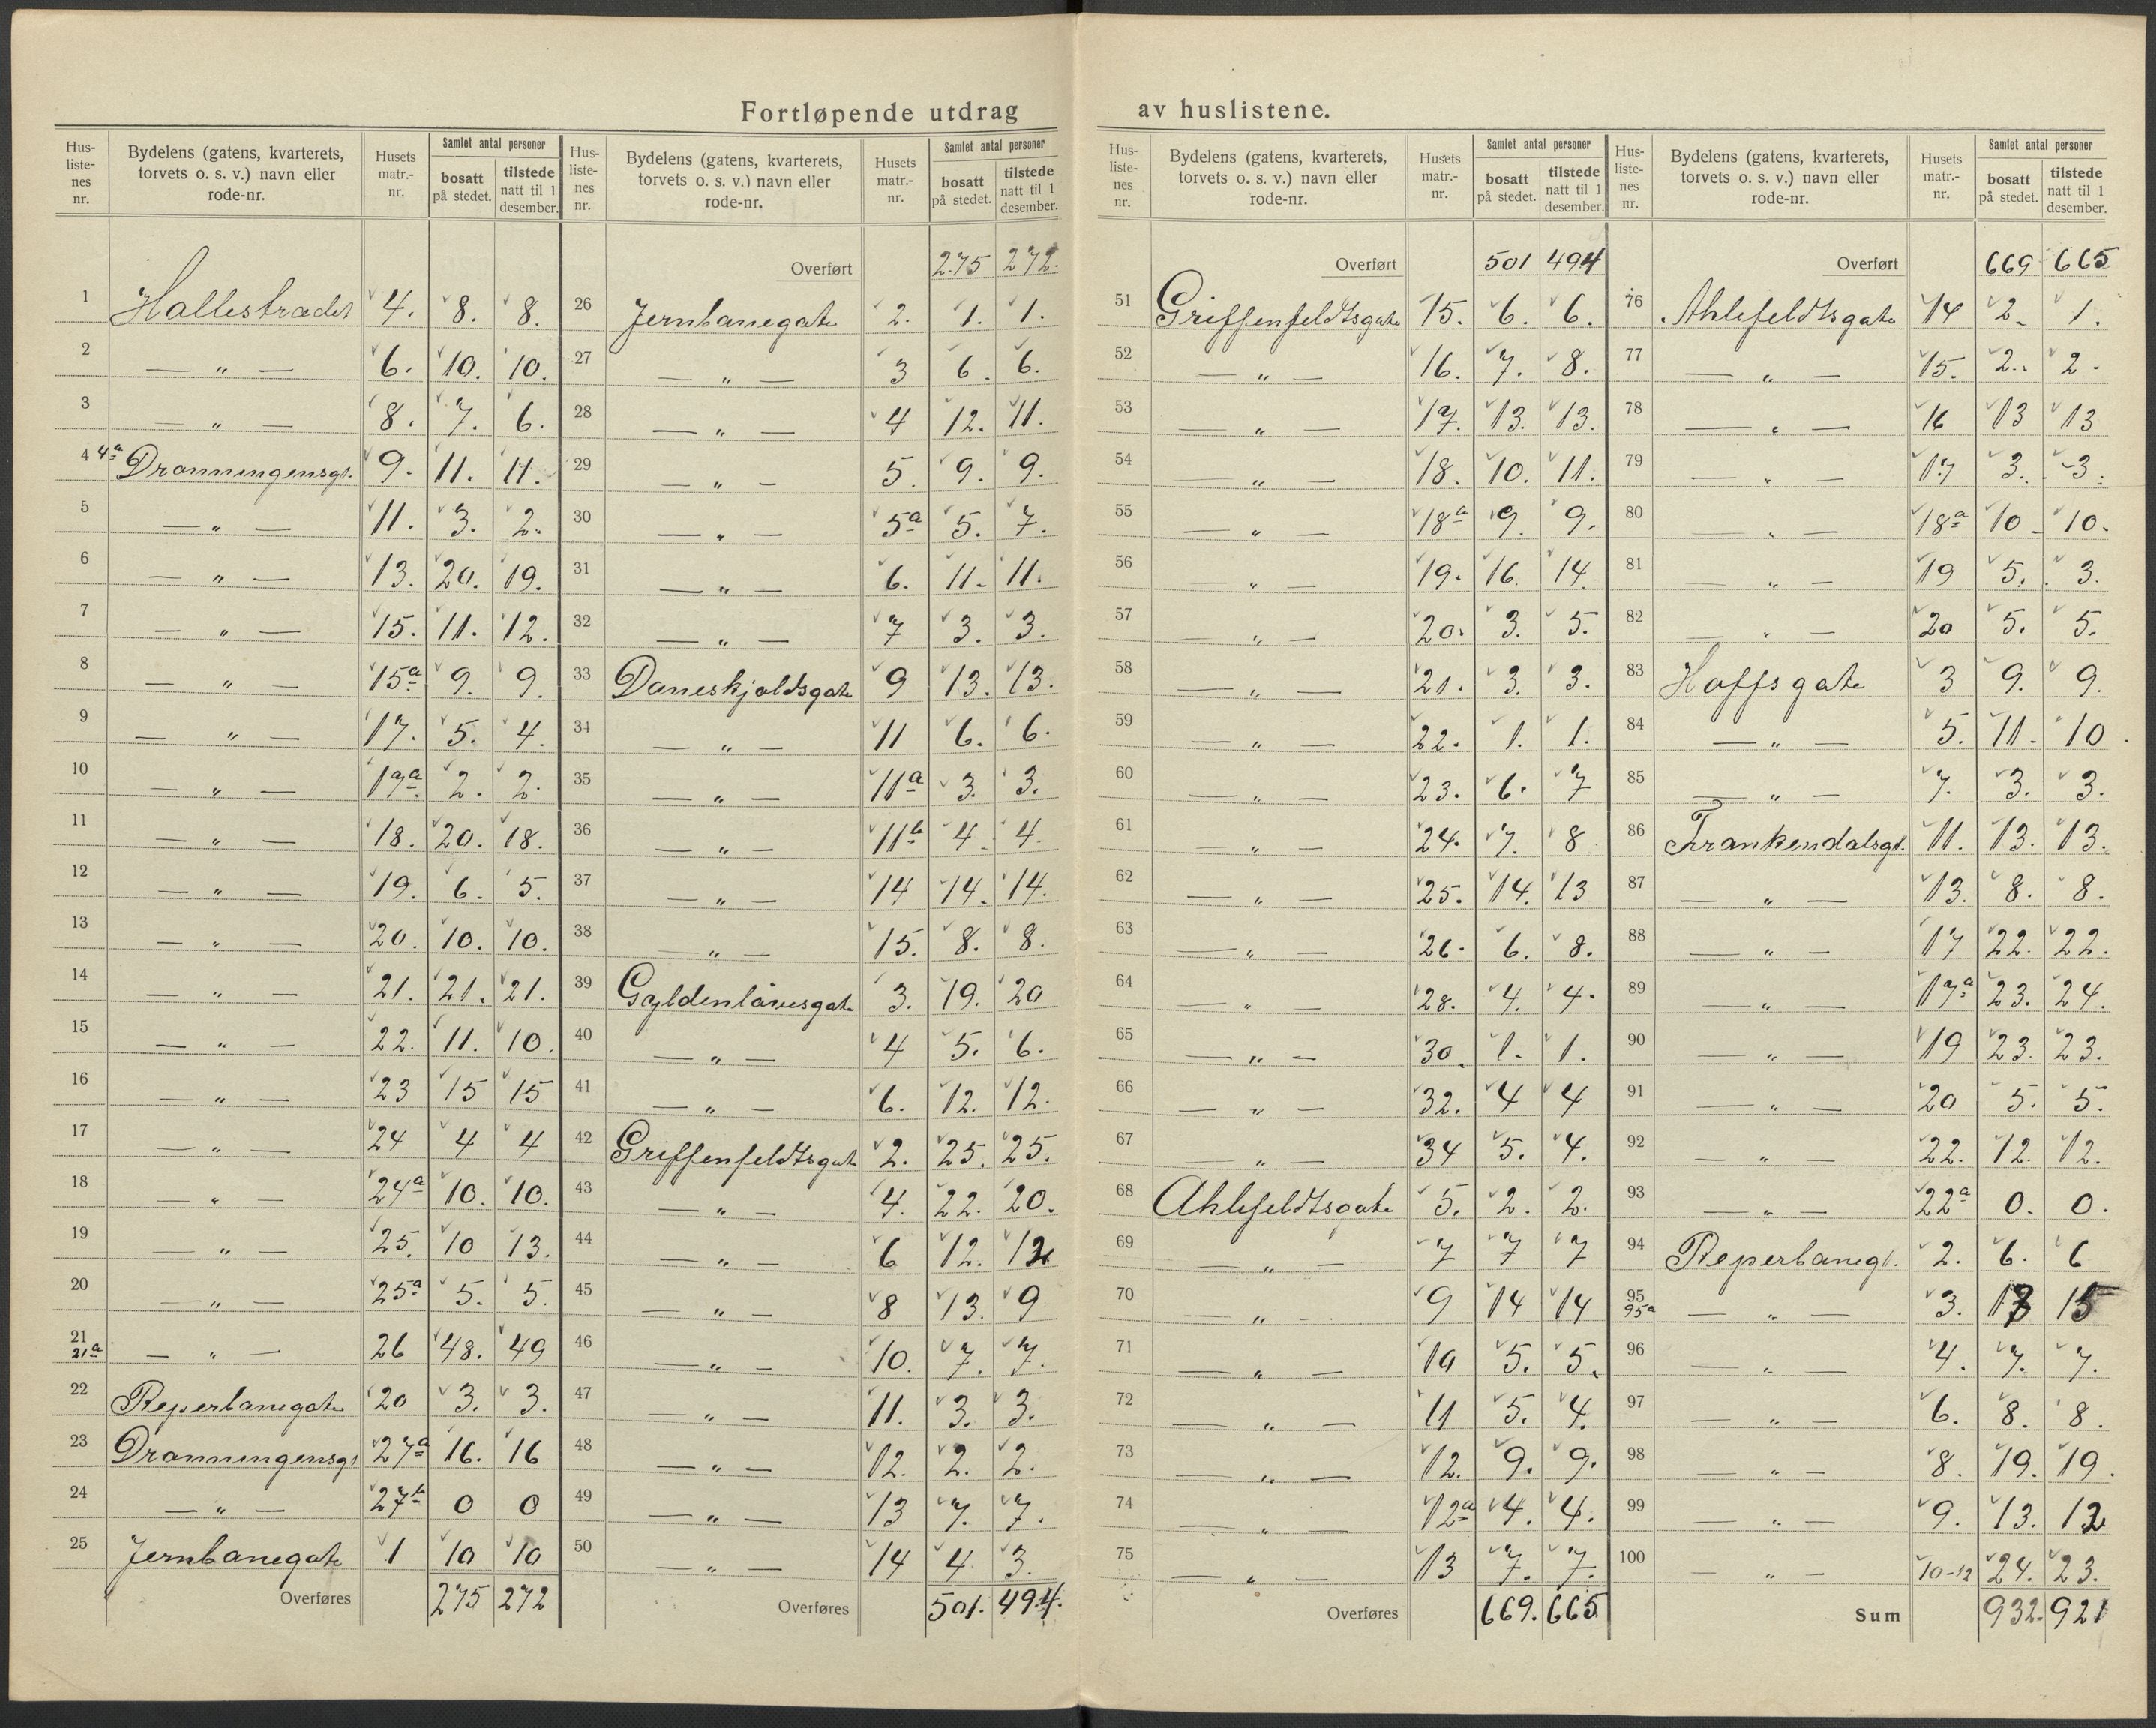 Fortløpende utdrag av huslistene.
Hus-listenes nr. Bydelens (gatens, kvarterets, torvets o. s. v.) navn eller rode-nr. Husets matr.-nr. Samlet antal personer bosatt på stedet. tilstede natt til 1 desember.
1 Hallestradet 4. 8. 8.
2 — „ — 6. 10. 10.
3 — „ — 8. 7. 6.
4 4a Dronningensgt. 9. 11. 11.
5 — „ — 11. 3. 2.
6 — „ — 13. 20. 19.
7 — „ — 15. 11. 12.
8 — „ — 15a 9. 9.
9 — „ — 17. 5. 4.
10 — „ — 17a. 2. 2.
11 — „ — 18. 20. 18.
12 — „ — 19. 6. 5.
13 — „ — 20. 10. 10.
14 — „ — 21. 21. 21.
15 — „ — 22. 11. 10.
16 — „ — 23 15 15
17 — „ — 24 4 4
18 — „ — 24a 10. 10.
19 — „ — 25. 10 13.
20 — „ — 25a 5. 5.
21 21a — „ — 26 48. 49
22 Reperbanegate 20 3. 3.
23 Dronningensgt 27a 16. 16
24 — „ — 27b 0 0
25 Jernbanegate 1 10 10
Overføres 275 272
Hus-listenes nr. Bydelens (gatens, kvarterets, torvets o. s. v.) navn eller rode-nr. Husets matr.-nr. Samlet antal personer bosatt på stedet. tilstede natt til 1 desember.
Overført 275 272.
26 Jernbanegate 2. 1. 1.
27 — „ — 3 6. 6.
28 — „ — 4 12. 11.
29 — „ — 5. 9. 9.
30 — „ — 5a 5. 7.
31 — „ — 6. 11. 11.
32 — „ — 7 3. 3.
33 Daneskjoldsgate 9 13. 13.
34 — „ — 11 6. 6.
35 — „ — 11a 3. 3.
36 — „ — 11b 4. 4.
37 — „ — 14 14. 14.
38 — „ — 15. 8. 8.
39 Gyldenlövesgate 3. 19. 20
40 — „ — 4 5. 6.
41 — „ — 6. 12. 12.
42 Griffenfeldtsgate 2. 25. 25.
43 — „ — 4. 22. 20.
44 — „ — 6 12. 12
45 — „ — 8 13. 9
46 — „ — 10. 7. 7.
47 — „ — 11. 3. 3.
48 — „ — 12. 2. 2.
49 — „ — 13 7. 7.
50 — „ — 14 4. 3.
Overføres 501. 494.
Hus-listenes nr. Bydelens (gatens, kvarterets, torvets o. s. v.) navn eller rode-nr. Husets matr.-nr. Samlet antal personer bosatt på stedet. tilstede natt til 1 desember.
Overført 501 494
51 Griffenfeldtsgate 15. 6. 6.
52 — „ — 16. 7. 8.
53 — „ — 17. 13. 13.
54 — „ — 18. 10. 11.
55 — „ — 18a 9. 9.
56 — „ — 19. 16. 14.
57 — „ — 20. 3. 5.
58 — „ — 21. 3. 3.
59 — „ — 22. 1. 1.
60 — „ — 23. 6. 7
61 — „ — 24. 7. 8
62 — „ — 25. 14. 13
63 — „ — 26. 6. 8.
64 — „ — 28. 4. 4.
65 — „ — 30. 1. 1.
66 — „ — 32. 4 4
67 — „ — 34 5. 4.
68 Ahlefeldtsgate 5. 2. 2.
69 — „ — 7 7 7
70 — „ — 9 14 14
71 — „ — 10 5. 5.
72 — „ — 11 5. 4.
73 — „ — 12. 9. 9.
74 — „ — 12a 4. 4.
75 — „ — 13 7. 7.
Overføres 669. 665
Hus-listenes nr. Bydelens (gatens, kvarterets, torvets o. s. v.) navn eller rode-nr. Husets matr.-nr. Samlet antal personer bosatt på stedet. tilstede natt til 1 desember.
Overført 669 665
76 Ahlefeldtsgate 14 2. 1.
77 — „ — 15. 2. 2.
78 — „ — 16 13 13
79 — „ — 17 3. 3.
80 — „ — 18a 10. 10.
81 — „ — 19 5. 3.
82 — „ — 20 5. 5.
83 Hoffsgate 3 9. 9.
84 — „ — 5. 11. 10.
85 — „ — 7. 3. 3.
86 Frankendalsgt. 11. 13. 13.
87 — „ — 13. 8. 8.
88 — „ — 17 22. 22.
89 — „ — 17a 23. 24.
90 — „ — 19 23. 23.
91 — „ — 20 5. 5.
92 — „ — 22. 12. 12.
93 — „ — 22a 0. 0.
94 Reperbanegt. 2. 6. 6
95 95a — „ — 3. 15
96 — „ — 4. 7. 7.
97 — „ — 6. 8. 8.
98 — „ — 8. 19. 19.
99 — „ — 9. 13. 12
100 — „ — 10-12 24. 23.
Sum 932. 921